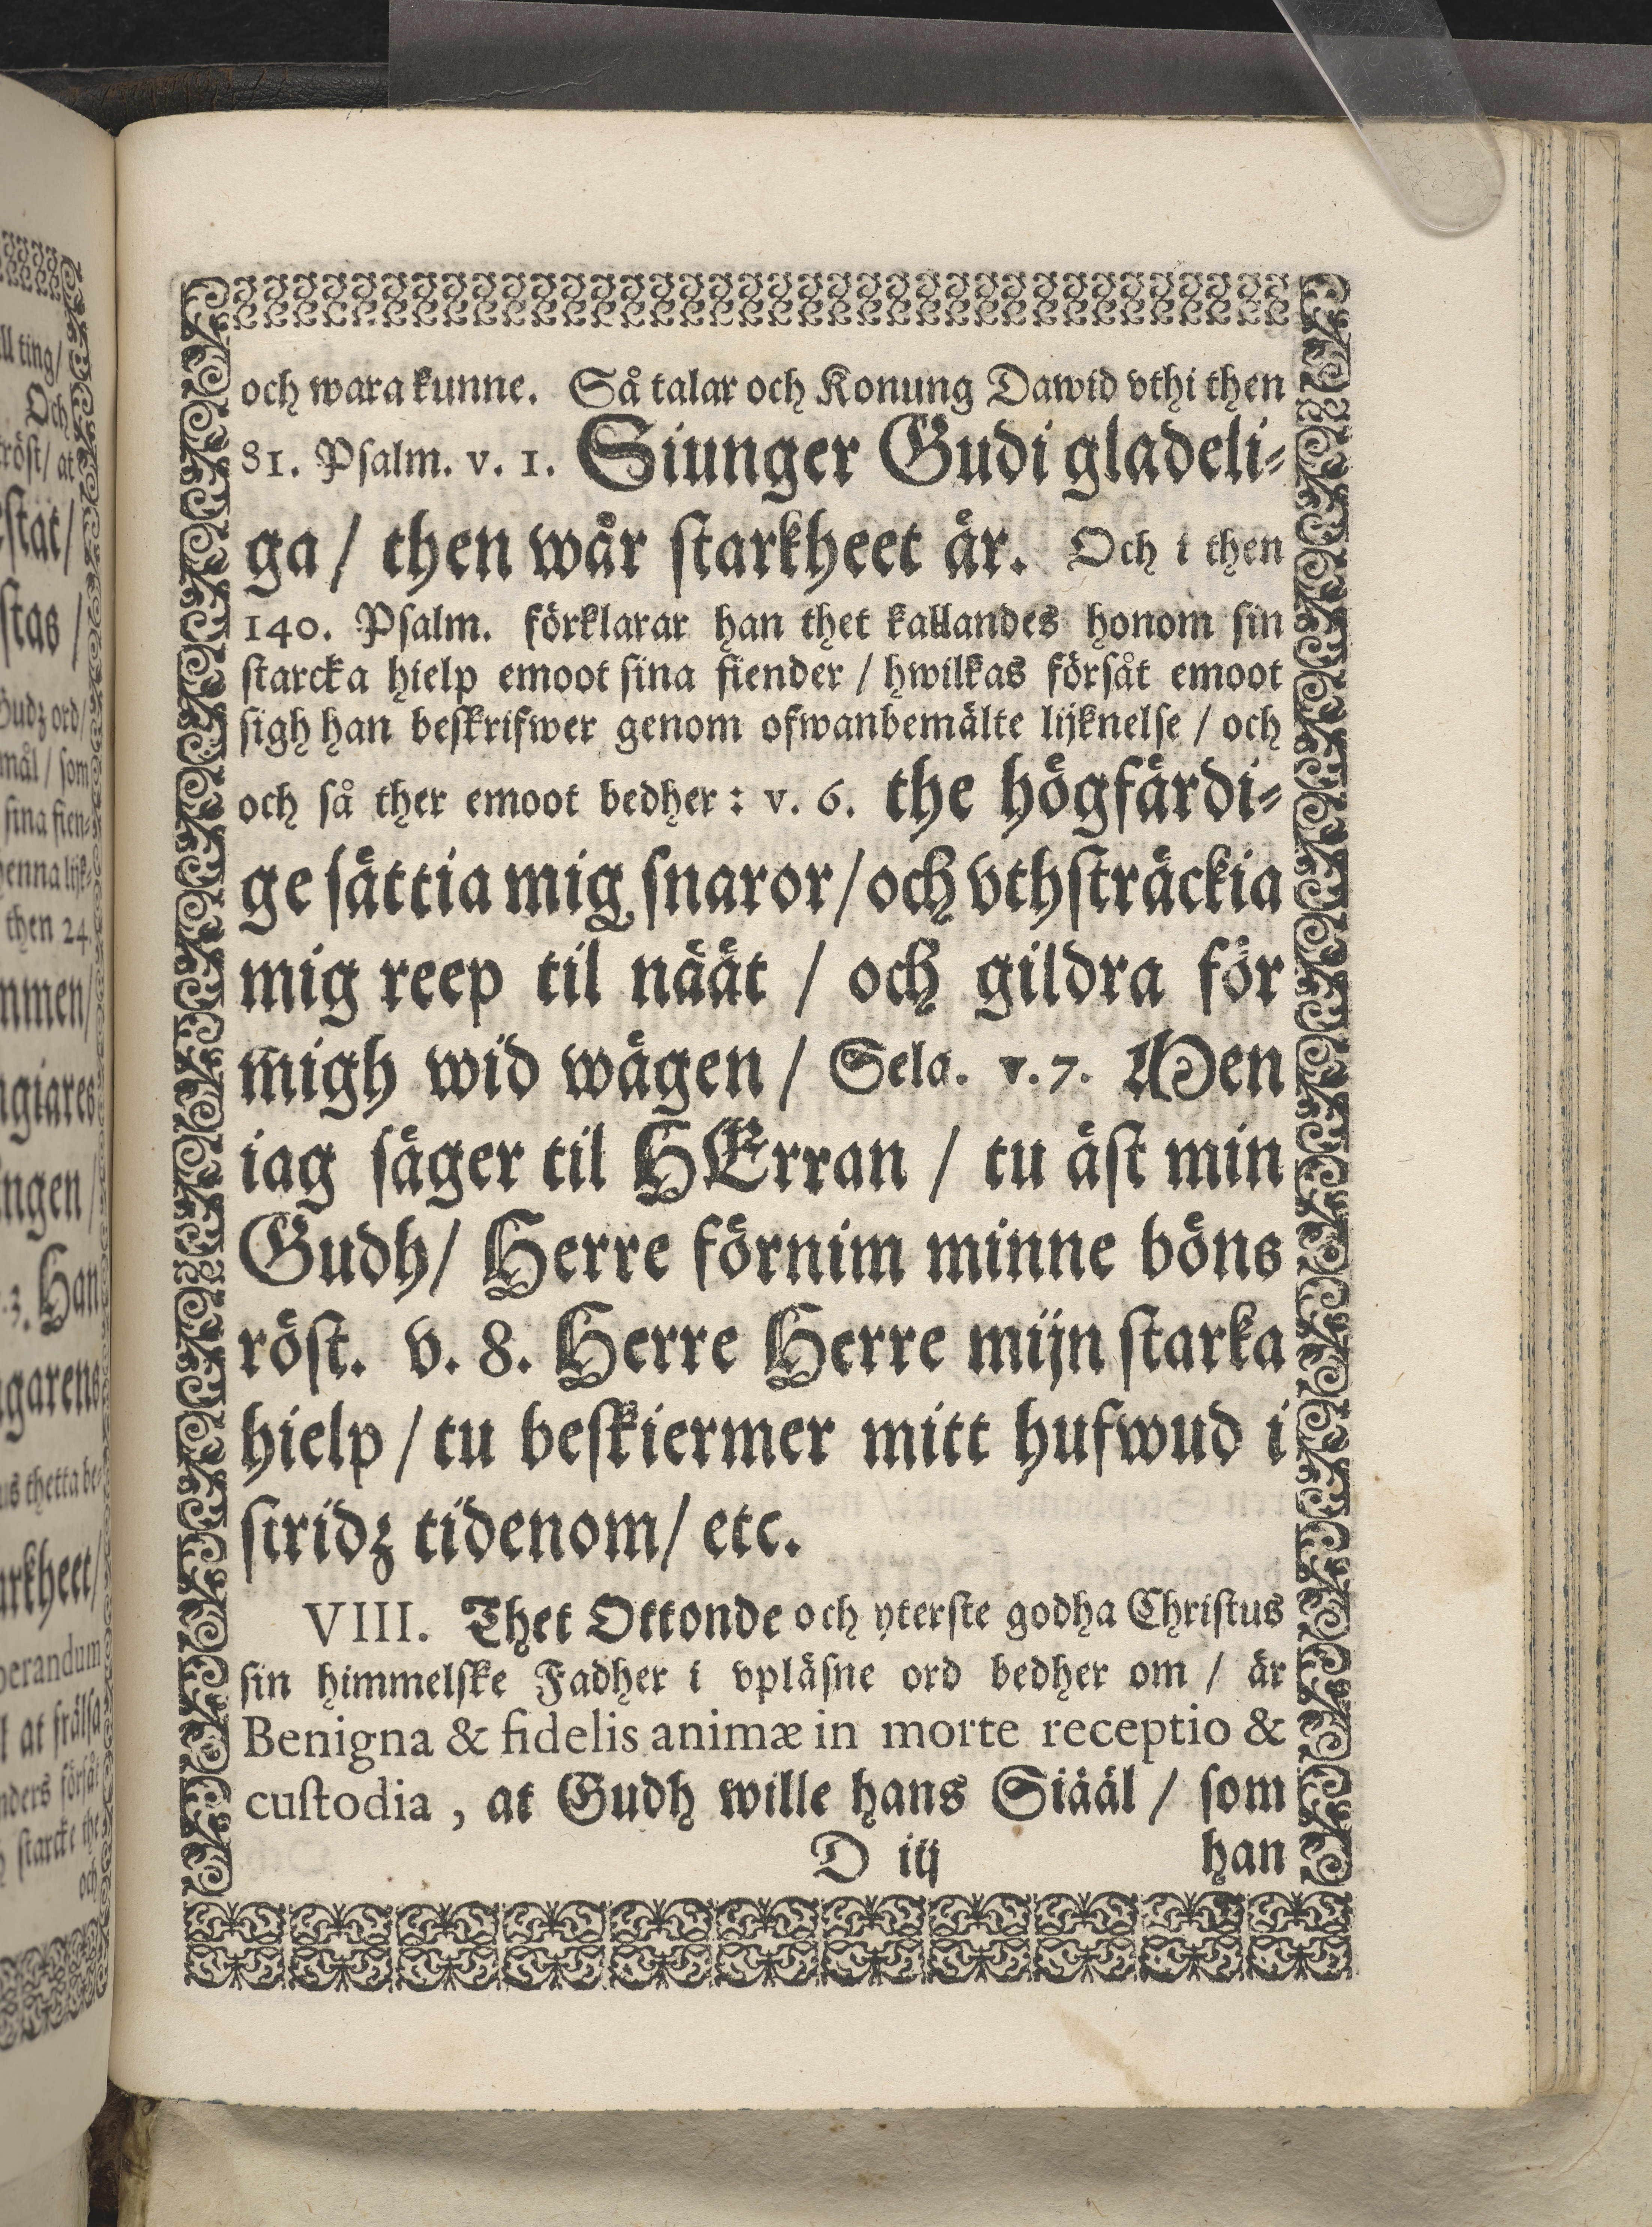 och wara kunne. Så talar och Konung Dawid vthi then
81. Psalm. v. 1. Siunger Gudi gladeli-
ga / then wår starkheet är. Och i then
140. Psalm. förklarar han thet kallandes honom sin
starcka hielp emoot sina fiender / hwilkas försåt emoot
sigh han beskrifwer genom ofwanbemälte lijknelse / och
och så ther emoot bedher: v. 6. the högfärdi-
ge sättia mig snaror / och vthsträckia
mig reep til näät / och gildra för
migh wid wägen / Sela. v. 7. Men
iag säger til HErran / tu äst min
Gudh / Herre förnim minne böns
röst. v. 8. Herre Herre mijn starka
hielp / tu beskiermer mitt hufwud i
stridz tidenom / etc.
VIII. Thet Ottonde och yterste godha Christus
sin himmelske Fadher i vpläsne ord bedher om / är
Benigna & fidelis animæ in morte receptio &
custodia, at Gudh wille hans Siääl / som
D iij han
ll ting /
Och
tröst / at
stas /
Gudz ord /
mål / som
sina fien-
then 24.
Han
garens
us thetta be-
l at frälsa
starcke the
och